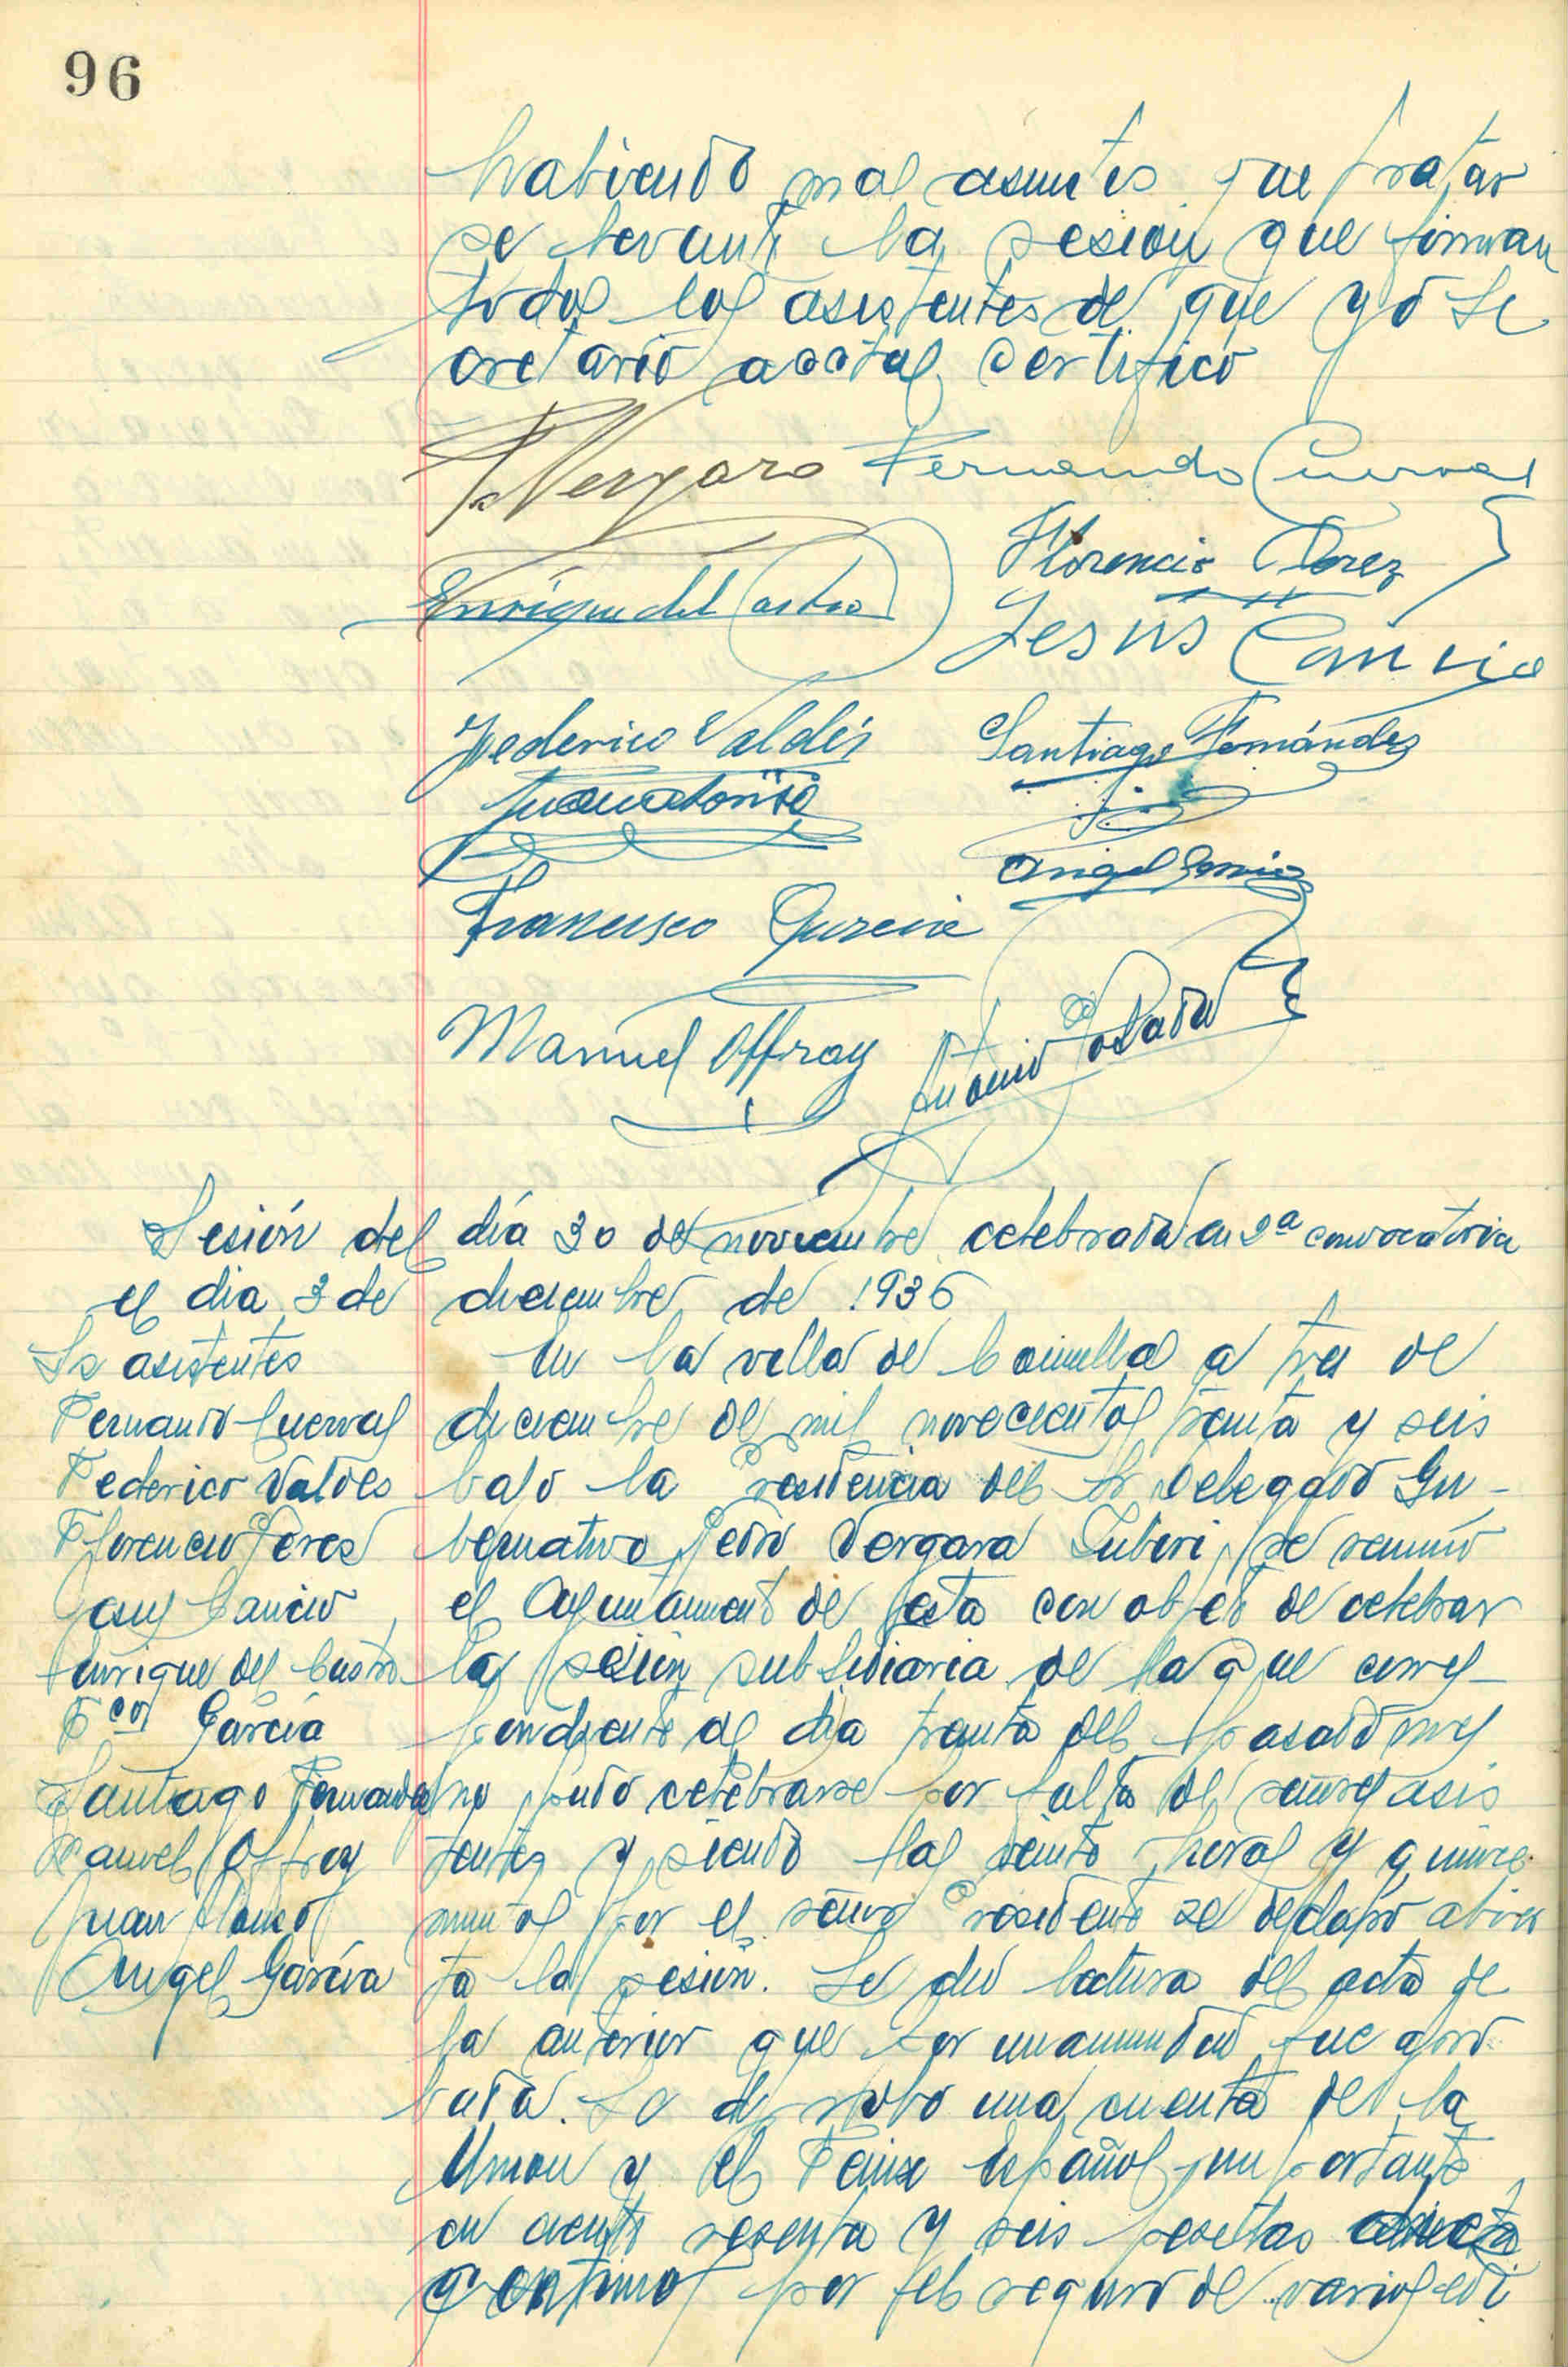 96
habiendo mas asuntos que tratar
se levantó la sesión que firman
todos los asistentes de que yo Se
cretario acctal certifico
P. Vergara Fernando Cuervas
Florencio Perez
Enrique del Castro
Jesús Cancio
Federico Valdés Santiago Fernández
Juan Alonso
Angel Garcia
Francisco Garcia
Manuel Offray Antonio Posada
Sesión del día 30 de noviembre celebrada en 2ª convocatoria
el dia 3 de diciembre de 1936
Ss asistentes
Fernando Cuervas
Federico Valdes
Florencio Perez
Jesus Cancio
Enrique del Castro
Fco Garcia
Santiago Fernandez
Manuel Offray
Juan Alonso
Angel García
En la villa de a tres de
diciembre de mil novecientos treinta y seis
bajo la Presidencia del Sr Delegado Gu-
bernativo Pedro Vergara se reunió
el Ayuntamiento de esta con objeto de celebrar
la sesión subsidiaria de la que corres-
pondiente al dia treinta del pasado mes
no pudo celebrarse por falta de señores asis
tentes y siendo las veinte horas y quince
minutos por el señor Presidente se declaró abier
ta la sesión. Se dio lectura del acta de
la anterior que por unanimidad fue apro
bada. Se aprobo una cuenta de la
Union y el Fenix Español importante
en ciento sesenta y seis pesetas
centimos por el seguro de varios edi